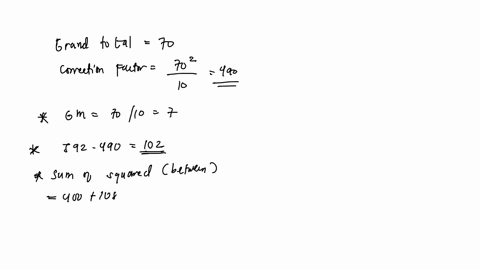 Grand total = 70
Correction Factor = 70²/10 = 490
* GM = 70/10 = 7
* 592 - 490 = 102
* Sum of squared (between)
= 400 + 108